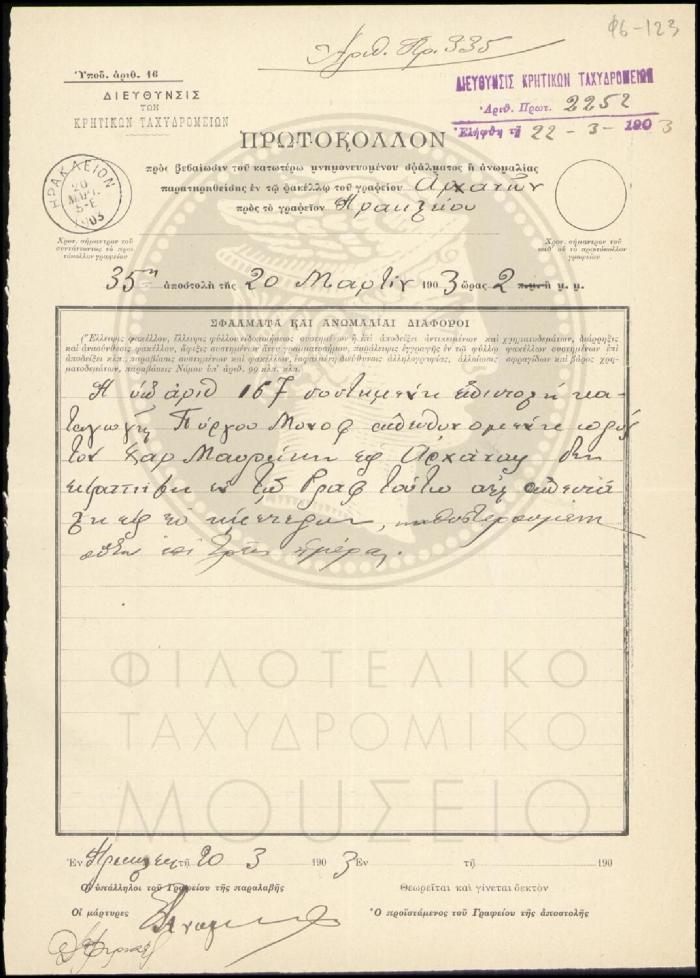 Φ6-123
Ἀριθ. Πρ. 335
Ὑποδ. ἀριθ. 16
ΔΙΕΥΘΥΝΣΙΣ
ΤΩΝ
ΚΡΗΤΙΚΩΝ ΤΑΧΥΔΡΟΜΕΙΩΝ
ΔΙΕΥΘΥΝΣΙΣ ΚΡΗΤΙΚΩΝ ΤΑΧΥΔΡΟΜΕΙΩΝ
Ἀριθ. Πρωτ. 2252
Ἐλήφθη τῇ 22-3-1903
ΠΡΩΤΟΚΟΛΛΟΝ
πρὸς βεβαίωσιν τοῦ κατωτέρω μνημονευομένου σφάλματος ἢ ἀνωμαλίας
παρατηρηθείσης ἐν τῷ φακέλλῳ τοῦ γραφείου Ἀρχανῶν
πρὸς τὸ γραφεῖον Ἡρακλείου
ΗΡΑΚΛΕΙΟΝ
20
ΜΑΡΤ.
5-Ε
1903
Χρον. σήμαντρον τοῦ
συντάττοντος τὸ πρω
τόκολλον γραφείου
Χρον. σήμαντρον τοῦ
καθ' οὗ τὸ πρωτόκολλον
γραφείου
35η ἀποστολὴ τῆς 20 Μαρτίου 1903 ὥρας 2 π.μ. ἢ μ. μ.
ΣΦΑΛΜΑΤΑ ΚΑΙ ΑΝΩΜΑΛΙΑΙ ΔΙΑΦΟΡΟΙ
(Ἔλλειψις φακέλλου, ἔλλειψις φύλλου εἰδοποιήσεως συστημένων ἢ ἐπὶ ἀποδείξει ἀντικειμένων καὶ χρηματοδεμάτων, διάρρηξις
καὶ ἀνασύνθεσις φακέλλου, ἄφιξις συστημένων ἄνευ γραμματοσήμου, παράλειψις ἐγγραφῆς ἐν τῷ φύλλῳ φακέλλου συστημένων ἐπὶ
ἀποδείξει κλπ., παραβίασις συστημένων καὶ φακέλλων, ἐσφαλμένη διεύθυνσις ἀλληλογραφίας, ἀλλοίωσις σφραγίδων καὶ βάρος χρη-
ματοδεμάτων, παραβάσεις Νόμου ὑπ' ἀριθ. 99 κλπ. κλπ.
Ἡ ὑπ' ἀριθ 167 συστημένη ἐπιστολὴ κα-
ταγωγῆς Πύργου Μονοφ ἀπευθυνομένη πρὸς
τὸν Χαρ Μαυράκην εἰς Ἀρχάνας δὲν
ἐκρατήθη ἐν τῷ Γραφ τούτῳ ἀλλ
εἰς τὸ ἡμέτερον, καθυστερουμένη
οὕτω ἐπὶ τρεῖς ἡμέρας.
ΦΙΛΟΤΕΛΙΚΟ
ΤΑΧΥΔΡΟΜΙΚΟ
ΜΟΥΣΕΙΟ
Ἐν Ἡρακλείῳ τῇ 20 3 1903 Ἐν τῇ 190
Οἱ ὑπάλληλοι τοῦ Γραφείου τῆς παραλαβῆς
Θεωρεῖται καὶ γίνεται δεκτὸν
Οἱ μάρτυρες
Ὁ προϊστάμενος τοῦ Γραφείου τῆς ἀποστολῆς